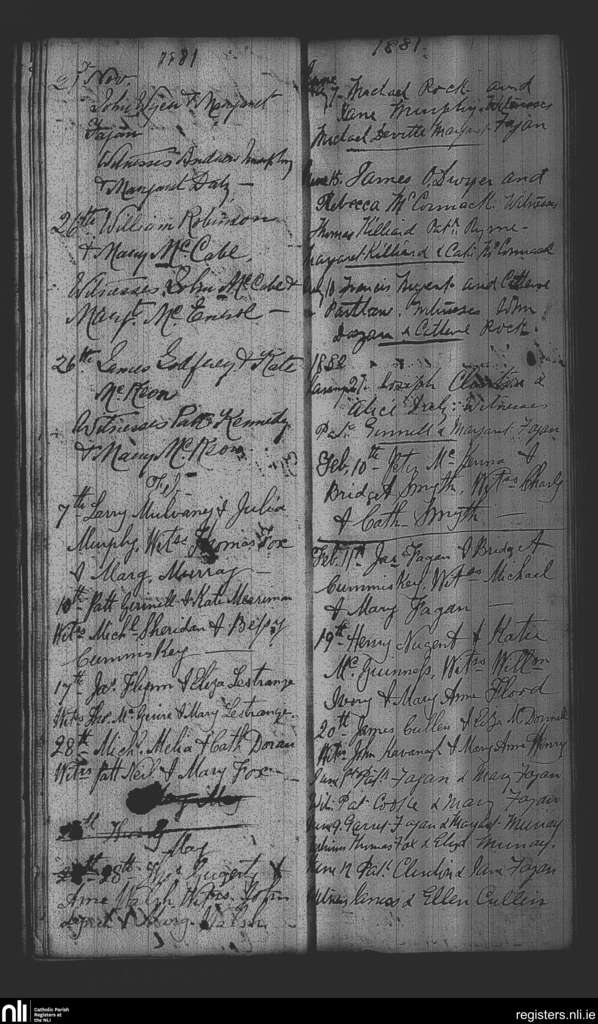 1881
21st Nov.
John Wyer & Margaret
Fagan
Witnesses Andrew Murphy
& Margaret Daly —
26th William Robinson
& Mary McCabe.
Witnesses. John McCabe &
Margt. Mc Enroe —
26th James Godfrey & Kate
McKeon
Witnesses Patt. Kennedy
& Mary McKeon
Feb.
7th Larry Mulvaney & Julia
Murphy. Witss Thomas Fox
& Marg. Murray —
10th Patt Gennell & Kate Merriman
Witss Michl Sheridan & Bessy
Cummiskey —
17th Jas Flynn & Eliza Lestrange
Witss Thos. McGuire & Mary Lestrange.
28th Michl. Melia & Cath. Doran
Witss Patt Neil & Mary Fox —
May
28th
May
28th Thos Gugerty &
Anne Walsh Witss. John
& Marg. Walsh
1881.
June
7. Michael Rock and
Jane Murphy. Witnesses
Michael Deville Margaret Fagan
June 15. James O'Dwyer and
Rebecca McCormack. Witnesses
Thomas Killiard Patk. Byrne —
Margaret Killiard & Cath McCormack
10 Francis Nugent and
Witnesses John
Fagan & Rock.
1882
January 27. Joseph Clinton &
Alice Daly: Witnesses
Patk. Gennell & Margaret Fagan
Feb. 10th Peter McKenna &
Bridget Smyth, Witss Charly
& Cath Smyth —
Feb. 11th Jas Fagan & Bridget
Cummiskey. Witss Michael
& Mary Fagan —
19th Henry Nugent & Katie
Mc Guinness, Witss Willm
Ivory & Mary Anne Flood
20th James Cullen & Eliza McDonnell
Witss. John Kavanagh & Mary Anne Henry
June 1st Patk Fagan & Mary Fagan
Wit. Pat Cooke & Mary Fagan
June 9. Garry Fagan & Margaret Murray
Witness Thomas Fox & Eliza Murray.
June 12 Patk. Clinton & Jane Fagan
Witness James & Ellen Cullen
nli
Catholic Parish
Registers at
the NLI
registers.nli.ie